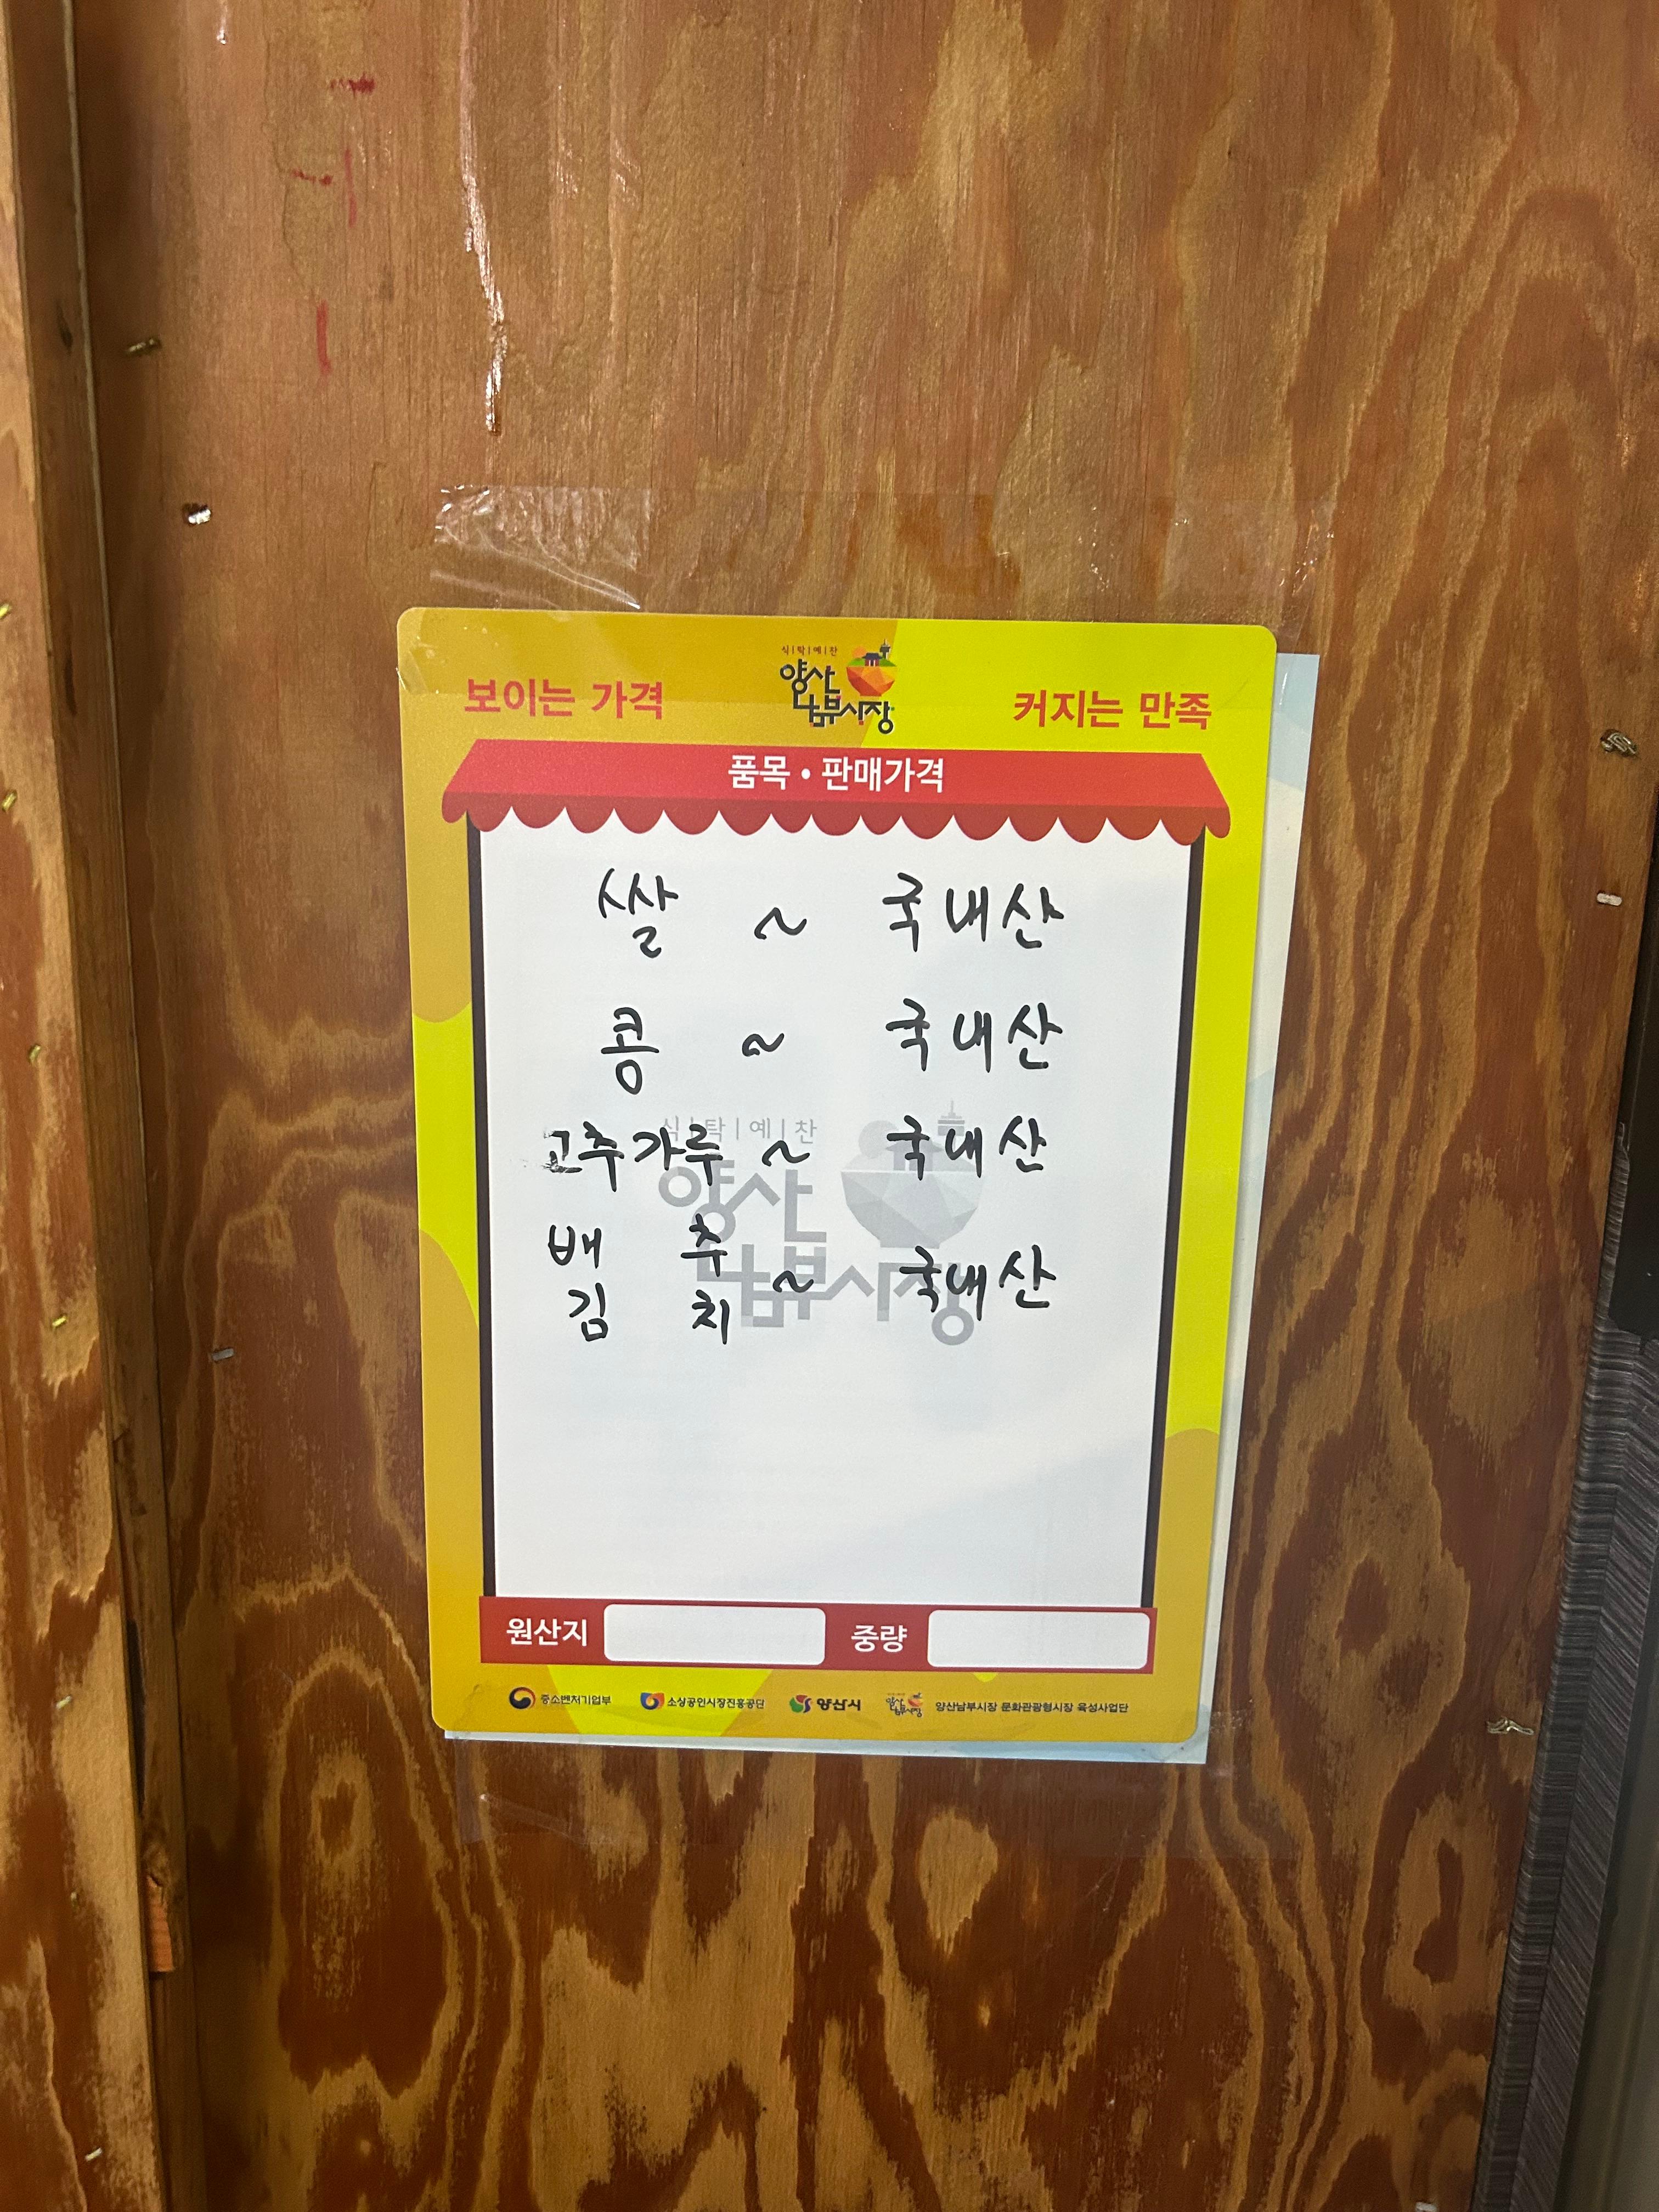 식|탁|예|찬
양산
남부시장
보이는 가격
커지는 만족
품목 • 판매가격
쌀 ~ 국내산
콩 ~ 국내산
고추가루 ~ 국내산
배 추
김 치 ~ 국내산
식|탁|예|찬
양산
남부시장
원산지
중량
중소벤처기업부 소상공인시장진흥공단 양산시 양산남부시장 양산남부시장 문화관광형시장 육성사업단